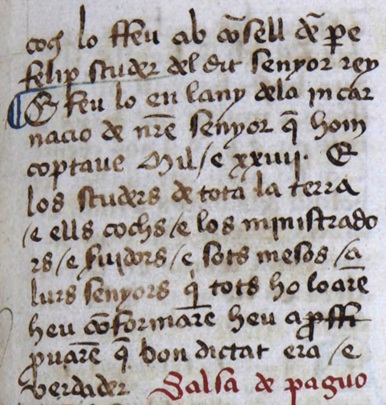 coch lo ffeu ab cõsell dẽ pe
felip studer del dit senyor rey
E feu lo en lany dela in car
nacio de nr̃e senyor q̃ hom
coptaue Mil / e xxuiij. E
los studers de tota la terra
/ e ells cochs / e los ministrado
rs / e suidors / e sots mesos / a
lurs senyors q̃ tots ho loarẽ
heu cõformarẽ heu aproffi
prouarẽ q̃ bon dictat era / e
verdader Salsa de paguo